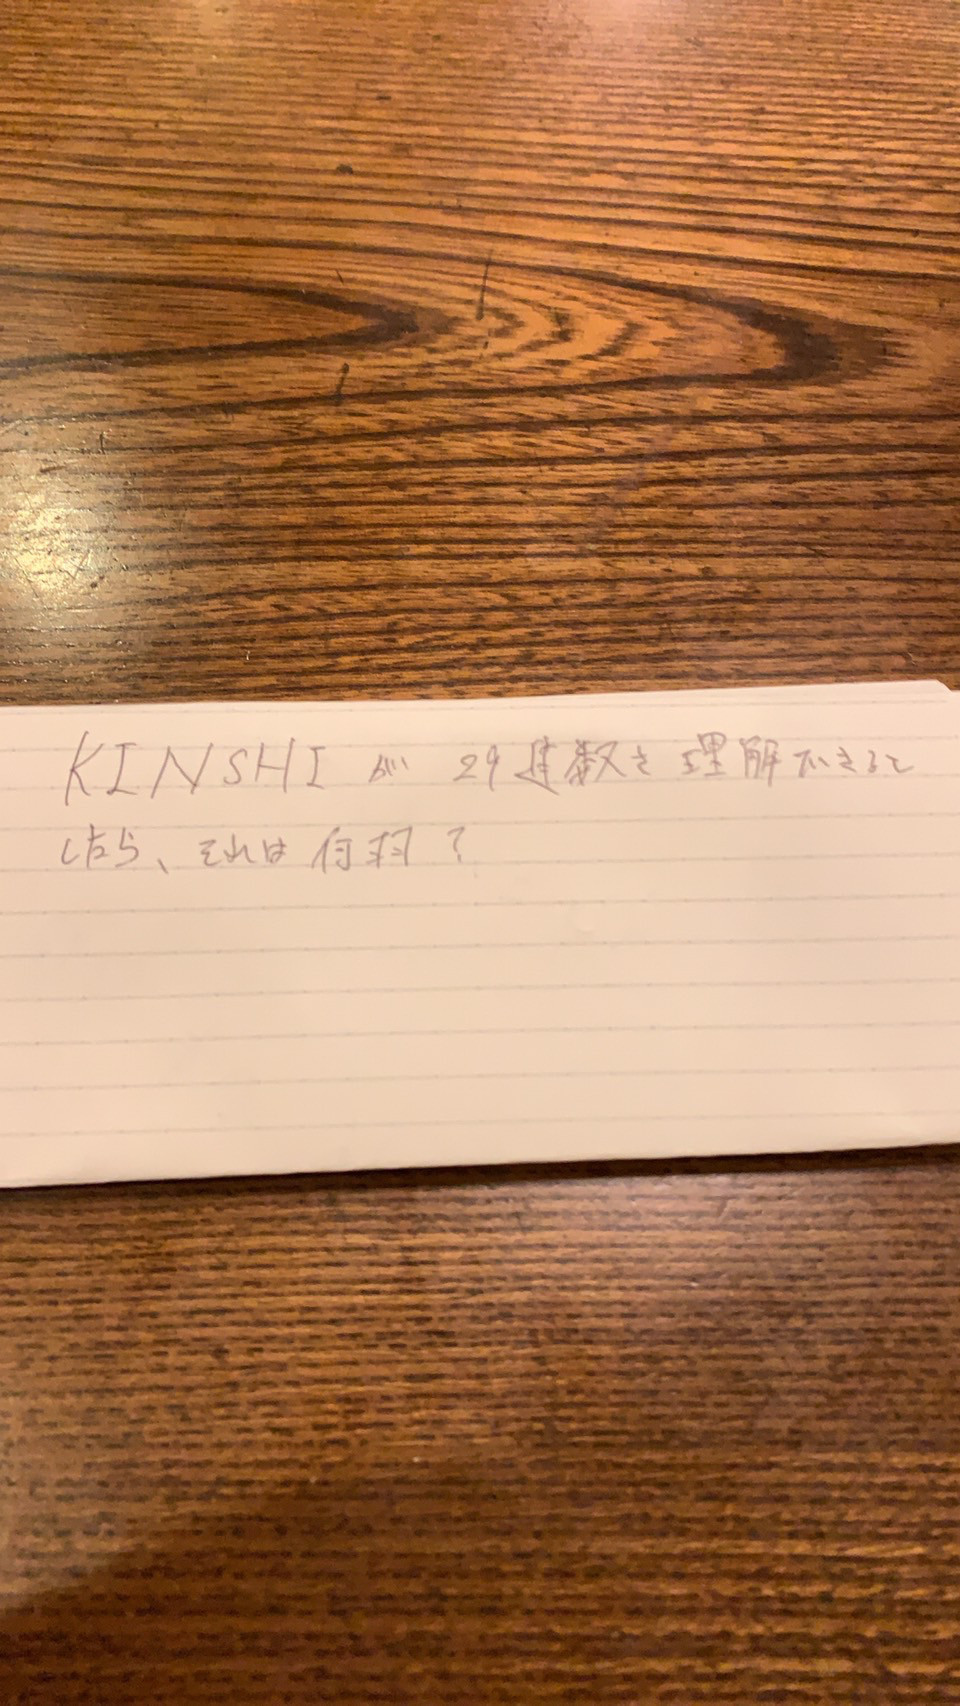 KINSHIが 29進数を理解できると
したら、それは何羽?